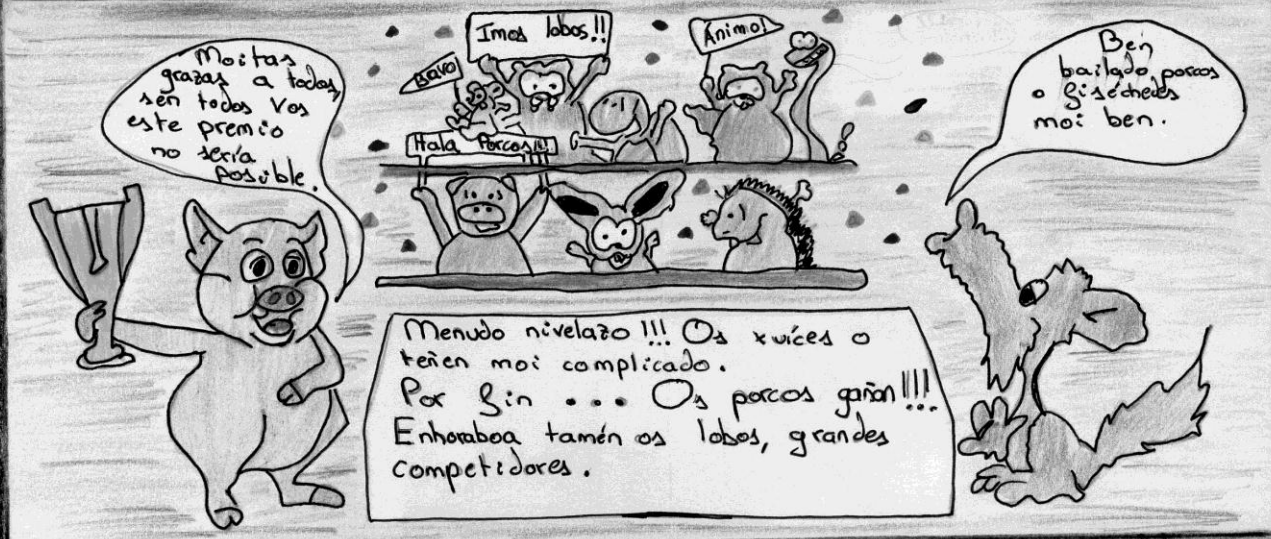 Moitas
grazas a todos,
sen todos vos
este premio
no sería
posible.
Imos lobos!!
Ánimo!
Bravo
Hala Porcos!!!
Ben
bailado porcos
o fixécheles
moi ben.
Menudo nivelazo!!! Os xuíces o
teñen moi complicado.
Por fin ... Os porcos gañan!!!
Enhoraboa tamén os lobos, grandes
competidores.